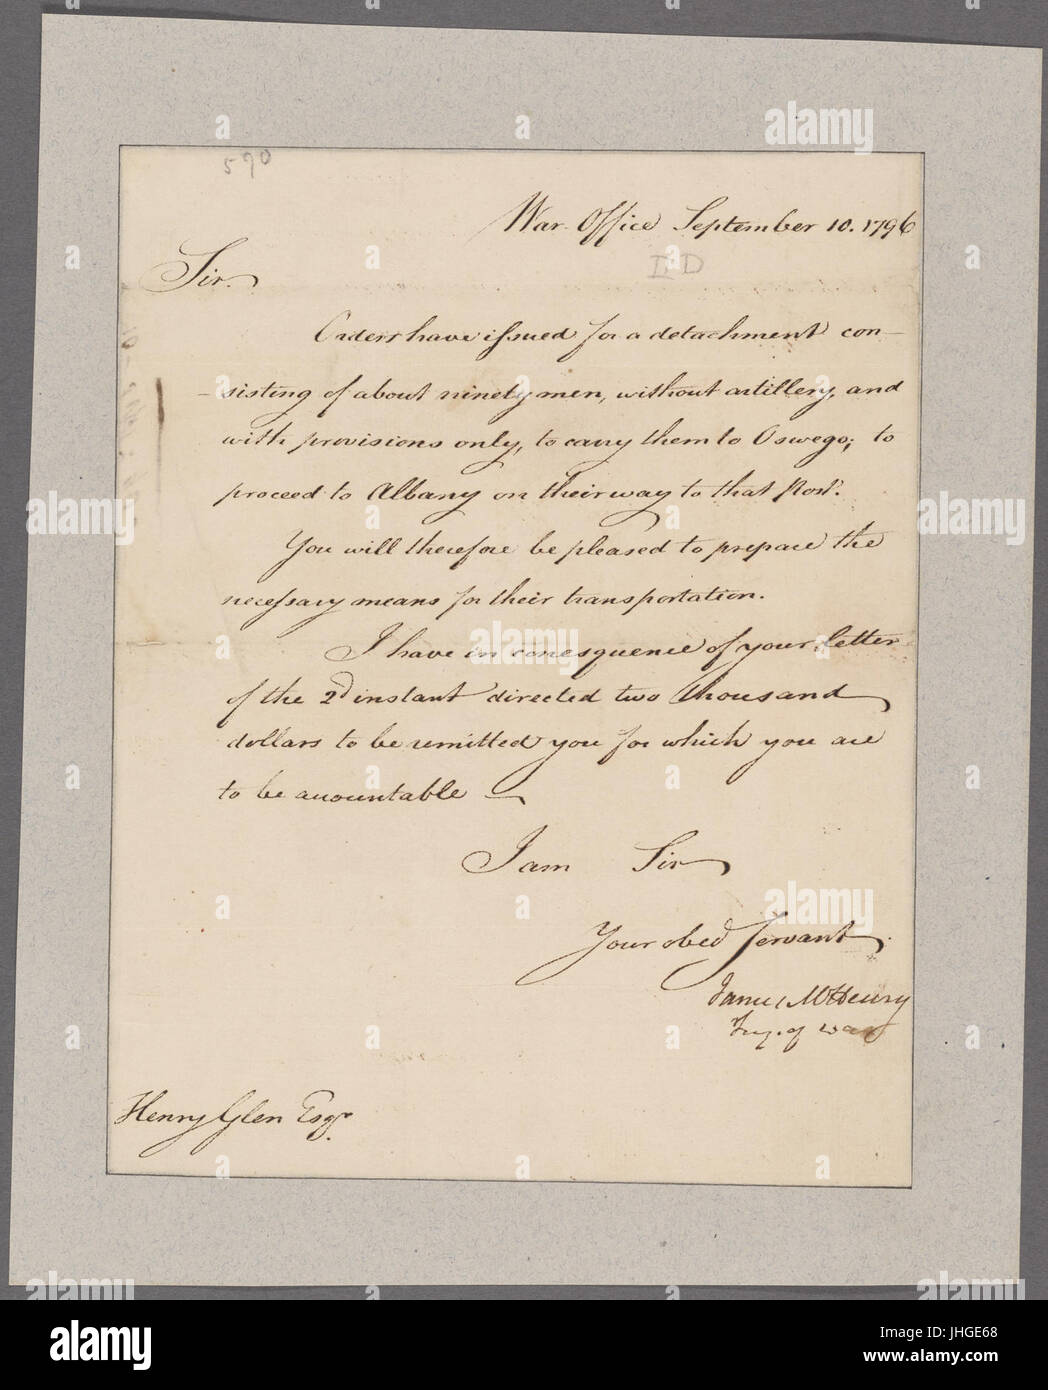 590
War Office September 10. 1796
ED
Sir.
Orders have issued for a detachment con-
-sisting of about ninety men, without artillery, and
with provisions only, to carry them to Oswego; to
proceed to Albany on their way to that Post.
You will therefore be pleased to prepare the
necessary means for their transportation.
I have in consequence of your letter
of the 2d instant directed two thousand
dollars to be remitted you for which you are
to be accountable —
I am Sir
Your obed Servant
James McHenry
Secy. of War
Henry Glen Esqr.
alamy
Image ID: JHGE68
www.alamy.com